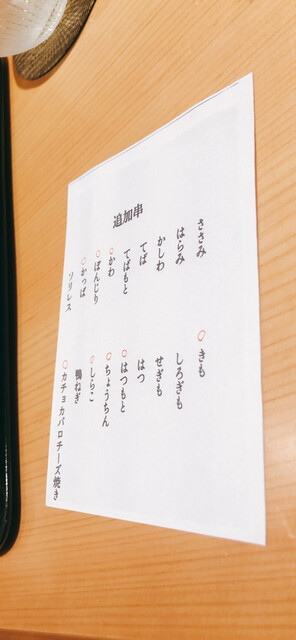 追加串
ささみ
はらみ
かしわ
てば
てばもと
○かわ
○ぼんじり
○かっぱ
ソリレス
○きも
しろぎも
せぎも
はつ
○はつもと
○ちょうちん
○しらこ
鴨ねぎ
○カチョカバロチーズ焼き